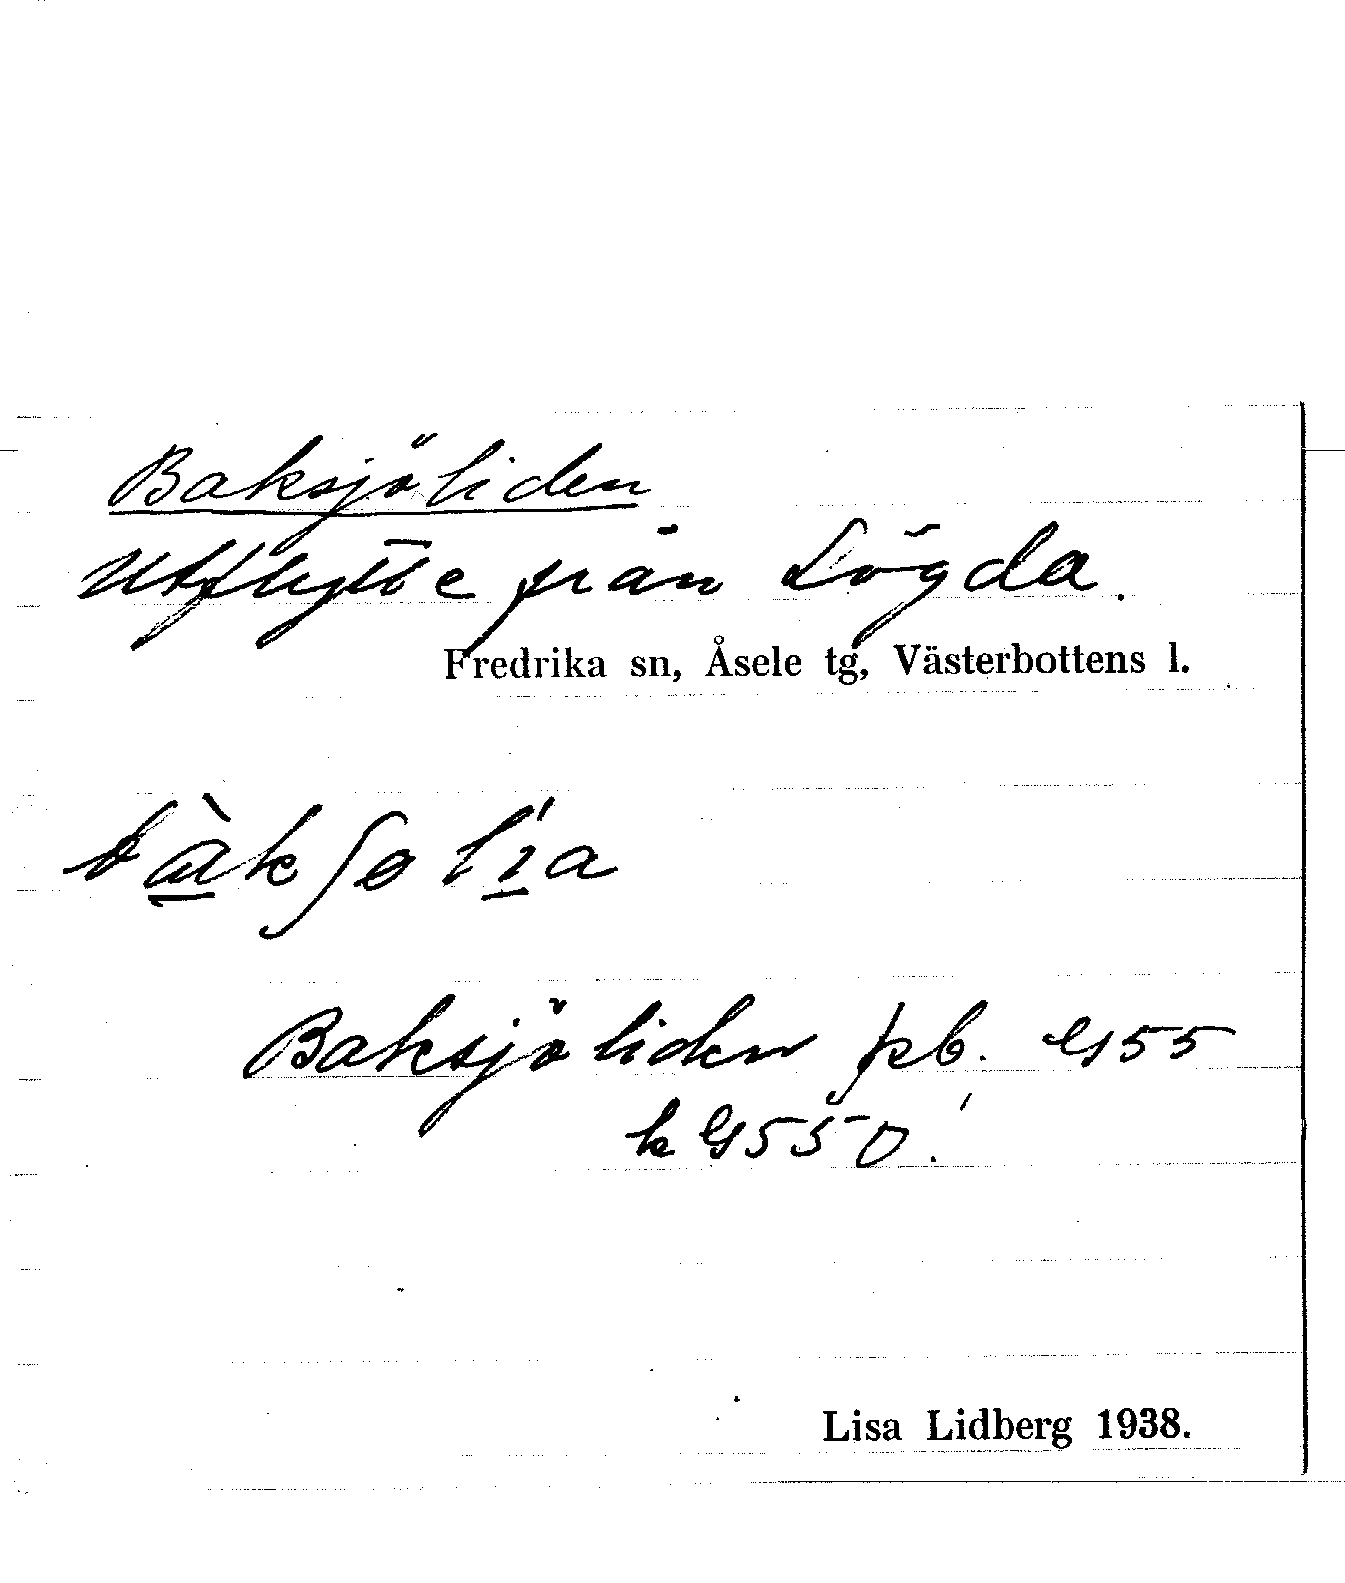 Baksjöliden
Utflytte från Lögda.
Fredrika sn, Åsele tg, Västerbottens l.
bàkʃɵlía
Baksjöliden kb. G55
k G550.
Lisa Lidberg 1938.